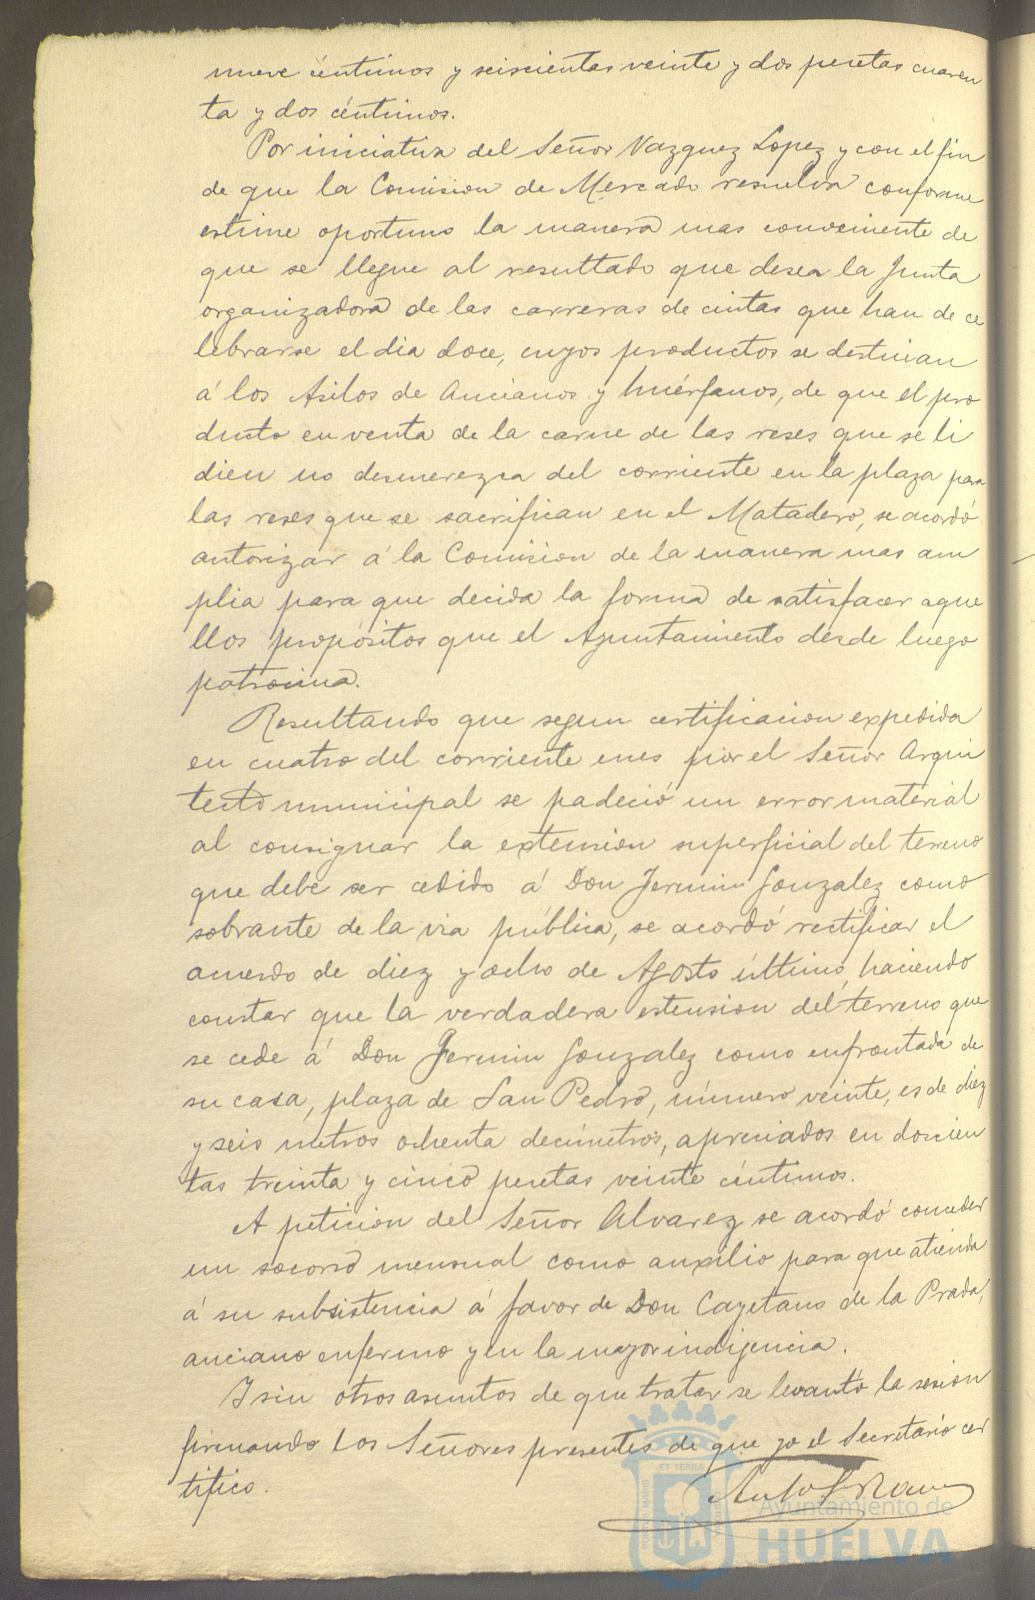 nueve céntimos y seiscientas veinte y dos pesetas cuaren
ta y dos céntimos.
Por iniciativa del Señor Vazquez Lopez y con el fin
de que la Comision de Mercado resuelva conforme
estime oportuno la manera mas conveniente de
que se llegue al resultado que desea la Junta
organizadora de las carreras de cintas que han de ce
lebrarse el dia doce, cuyos productos se destinan
á los Asilos de Ancianos y huérfanos, de que el pro
ducto en venta de la carne de las reses que se li
dien no desmerezca del corriente en la plaza para
las reses que se sacrifican en el Matadero, se acordó
autorizar á la Comision de la manera mas am
plia para que decida la forma de satisfacer aque
llos propósitos que el Ayuntamiento desde luego
patrocina.
Resultando que segun certificacion expedida
en cuatro del corriente mes por el Señor Arqui
tecto municipal se padeció un error material
al consignar la extension superficial del terreno
que debe ser cedido á Don Fermin Gonzalez como
sobrante de la via pública, se acordó rectificar el
acuerdo de diez y ocho de Agosto último, haciendo
constar que la verdadera estension del terreno que
se cede á Don Fermin Gonzalez como enfrontada de
su casa, plaza de San Pedro, número veinte, es de diez
y seis metros ochenta decímetros, apreciados en doscien
tas treinta y cinco pesetas veinte céntimos.
A peticion del Señor Alvarez se acordó conceder
un socorro mensual como auxilio para que atienda
á su subsistencia á favor de Don Cayetano de la Prada,
anciano enfermo y en la mayor indigencia.
Y sin otros asuntos de que tratar se levantó la sesion
firmando los Señores presentes de que yo el Secretario cer
tifico.
Ayuntamiento de
HUELVA